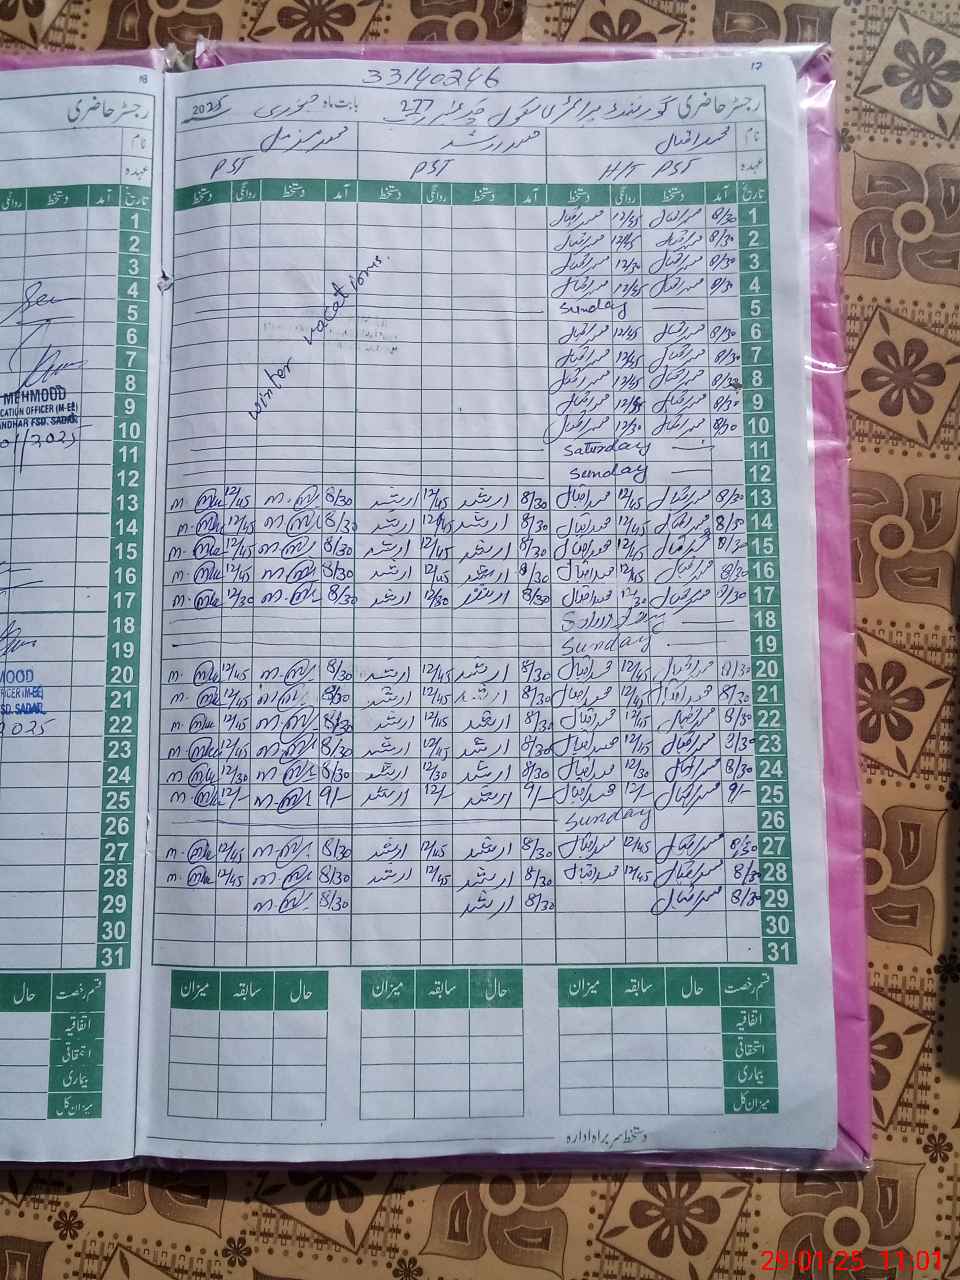 33140246
17
رجسٹر حاضری گورنمنٹ پرائمری سکول چک نمبر 277 بابت ماہ جنوری 2025
نام محمد اقبال محمد ارشد محمد مزمل
عہدہ H/T PST PST PST
تاریخ آمد دستخط روانگی دستخط آمد دستخط روانگی دستخط آمد دستخط روانگی دستخط
1 8/30 محمد اقبال 12/45 محمد اقبال
2 8/30 محمد اقبال 12/45 محمد اقبال
3 8/30 محمد اقبال 12/30 محمد اقبال
4 8/30 محمد اقبال 12/45 محمد اقبال
5 Sunday
6 8/30 محمد اقبال 12/45 محمد اقبال
7 8/30 محمد اقبال 12/45 محمد اقبال
8 8/30 محمد اقبال 12/45 محمد اقبال
9 8/30 محمد اقبال 12/45 محمد اقبال
10 8/30 محمد اقبال 12/30 محمد اقبال
winter vacations.
11 Saturday
12 Sunday
13 8/30 محمد اقبال 12/45 محمد اقبال 8/30 ارشد 12/45 ارشد 8/30 12/45
14 8/30 محمد اقبال 12/45 محمد اقبال 8/30 ارشد 12/45 ارشد 8/30 12/45
15 8/30 محمد اقبال 12/45 محمد اقبال 8/30 ارشد 12/45 ارشد 8/30 12/45
16 8/30 محمد اقبال 12/45 محمد اقبال 8/30 ارشد 12/45 ارشد 8/30 12/45
17 8/30 محمد اقبال 12/30 محمد اقبال 8/30 ارشد 12/30 ارشد 8/30 12/30
18
19 Sunday
20 8/30 محمد اقبال 12/45 محمد اقبال 8/30 ارشد 12/45 ارشد 8/30 12/45
21 8/30 محمد اقبال 12/45 محمد اقبال 8/30 ارشد 12/45 ارشد 8/30 12/45
22 8/30 محمد اقبال 12/45 محمد اقبال 8/30 ارشد 12/45 ارشد 8/30 12/45
23 8/30 محمد اقبال 12/45 محمد اقبال 8/30 ارشد 12/45 ارشد 8/30 12/45
24 8/30 محمد اقبال 12/30 محمد اقبال 8/30 ارشد 12/30 ارشد 8/30 12/30
25 9/- محمد اقبال 12/- محمد اقبال 9/- ارشد 12/- ارشد 9/- 12/-
26 Sunday
27 8/30 محمد اقبال 12/45 محمد اقبال 8/30 ارشد 12/45 ارشد 8/30 12/45
28 8/30 محمد اقبال 12/45 محمد اقبال 8/30 ارشد 12/45 ارشد 8/30 12/45
29 8/30 محمد اقبال 8/30 ارشد 8/30
30
31
قسم رخصت حال سابقہ میزان حال سابقہ میزان حال سابقہ میزان
اتفاقیہ
استحقاقی
بیماری
میزان کل
دستخط سربراہ ادارہ
18
رجسٹر حاضری
نام
عہدہ
تاریخ آمد دستخط روانگی
1
2
3
4
5
6
7
8
9
10
11
12
13
14
15
16
17
18
19
20
21
22
23
24
25
26
27
28
29
30
31
MEHMOOD
CATION OFFICER (M-EE)
ANDHAR FSD. SADAR
01/2025
MOOD
FICER (M-EE)
SD. SADAR
2025
قسم رخصت حال
اتفاقیہ
استحقاقی
بیماری
میزان کل
29-01-25 11:01